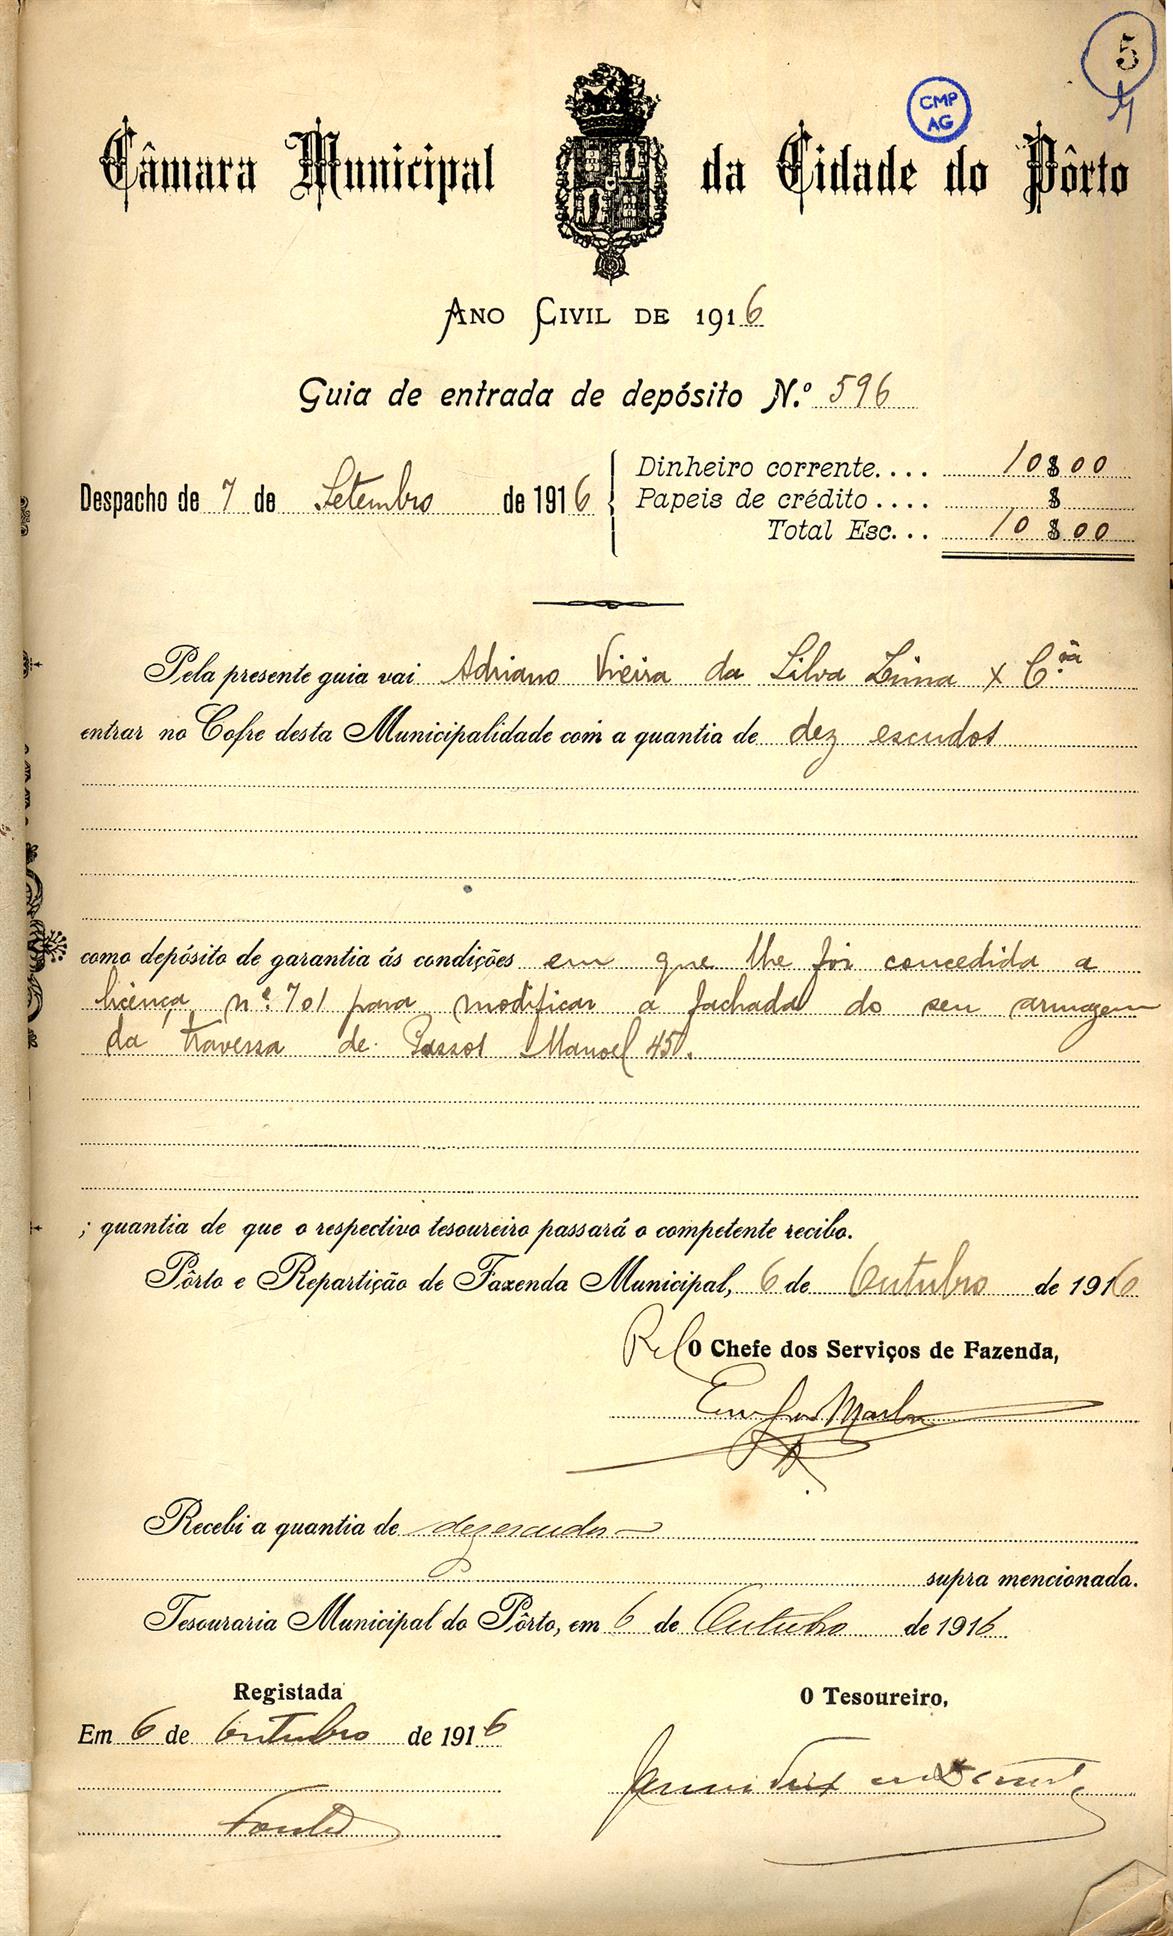 5
CMP
AG
Câmara Municipal da Cidade do Pôrto
ANO CIVIL DE 1916
Guia de entrada de depósito N.º 596
Despacho de 7 de Setembro de 1916
Dinheiro corrente.... 10$00
Papeis de crédito.... $
Total Esc... 10$00
Pela presente guia vai Adriano Vieira da Silva Lima & C.ia
entrar no Cofre desta Municipalidade com a quantia de dez escudos
como depósito de garantia ás condições em que lhe foi concedida a
licença nº 701 para modificar a fachada do seu armazem
da travessa de Passos Manoel 45.
; quantia de que o respectivo tesoureiro passará o competente recibo.
Pôrto e Repartição de Fazenda Municipal, 6 de Outubro de 1916
Pel O Chefe dos Serviços de Fazenda,
Recebi a quantia de dez escudos
supra mencionada.
Tesouraria Municipal do Pôrto, em 6 de Outubro de 1916
Registada
Em 6 de Outubro de 1916
O Tesoureiro,